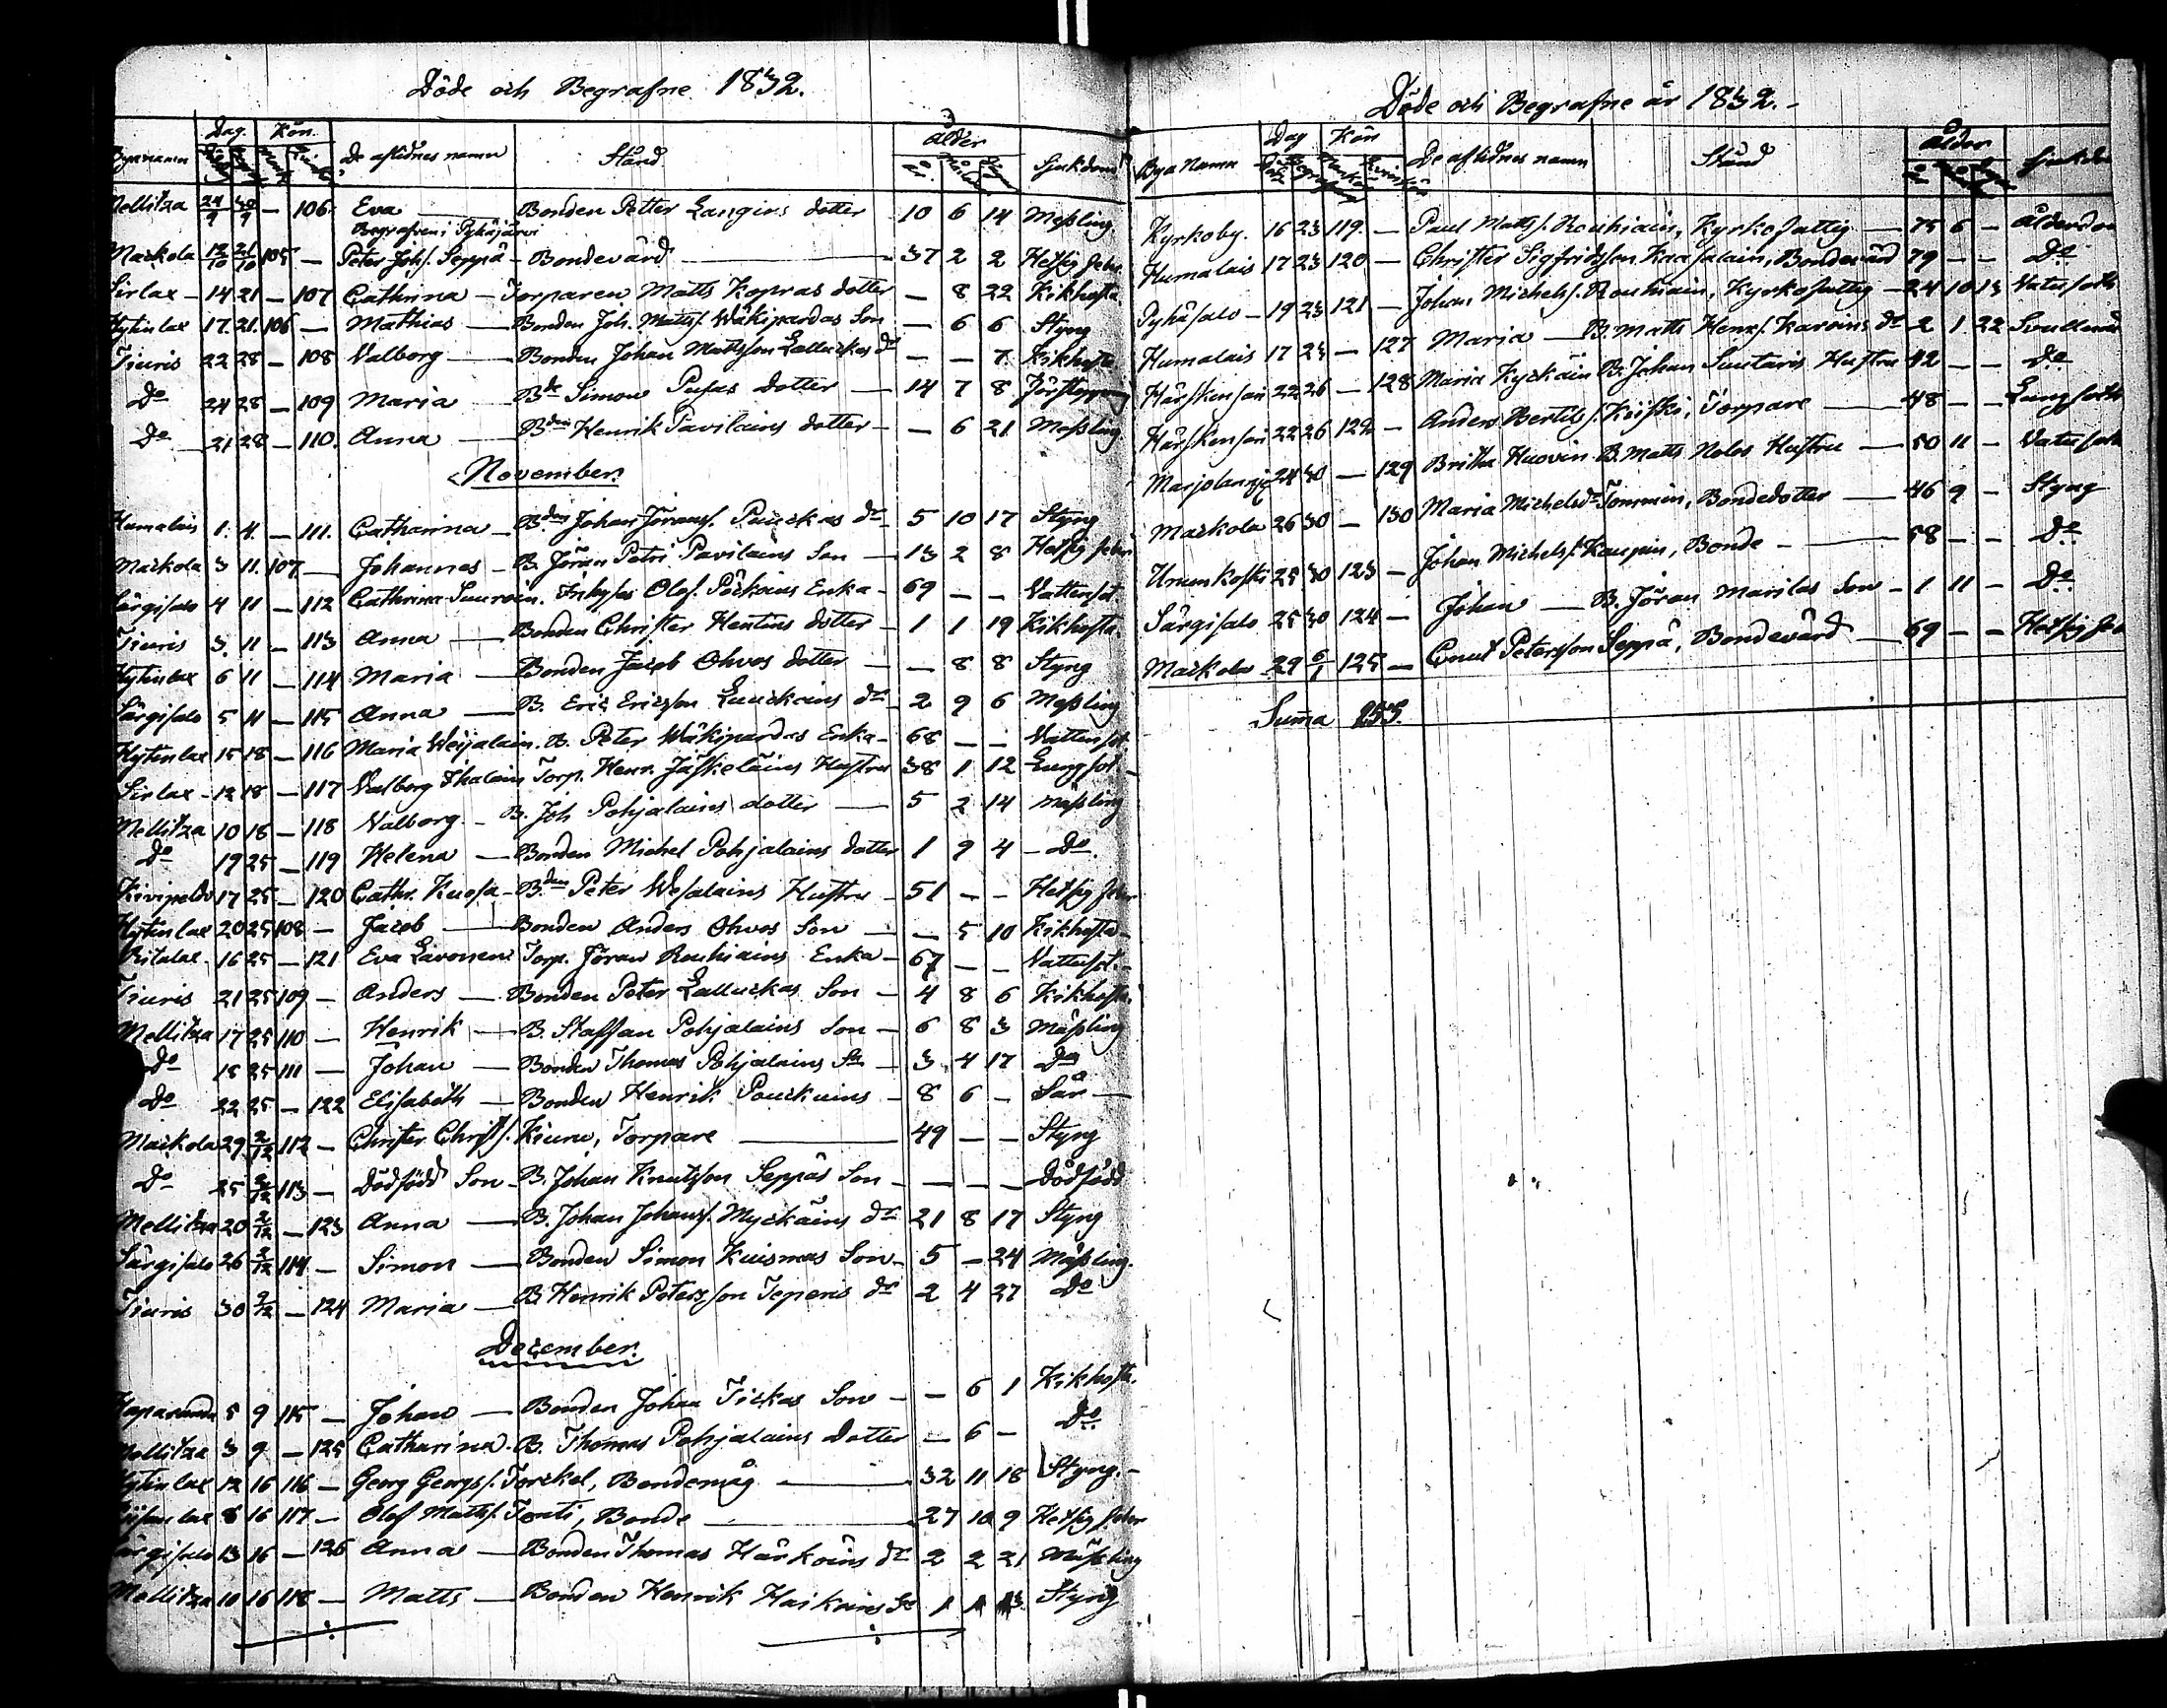 Döde och Begrafne 1832.
Byanamn Dag. Kön. De aflidnes namn Stånd ålder Sjukdom
Mellitza 24/9 30/9 — 106. Eva Bonden Petter Langins dotter 10 6 14 Messling
Begrafven i Pyhäjärvi
Mackola 12/10 21/10 105 — Peter Johs. Seppä - Bondevärd 37 2 2 Hetsig feber
Sirlax - 14 21 — 107 Cathrina — Torparen Matts Kopras dotter — 8 22 Kikhosta
Hytinlax 17. 21. 106 — Mathias — Bonden Joh. Matts. Wäkipardas Son — 6 6 Styng
Tiuris 22 28 — 108 Valborg — Bonden Johan Mattsson Lalluckas dr — — 7 Kikhosta
Do 24 28 — 109 Maria — Bde Simon Pusas dotter — 14 7 8 Förstoppning
Do 21 28 — 110. Anna — Bden Henrik Pavilains dotter — — 6 21 Messling
November.
Humalais 1. 4. — 111. Catharina — B.den Johan Jöranss. Pauckas dr 5 10 17 Styng
Mackola 3 11. 107 — Johannes — B. Jöran Petri Pavilains Son — 13 2 8 Hetsig feber
Särgisalo 4 11 — 112 Cathrina Sauroin. Olof. Päckains Enka — 69 — — Vattensot
Tiuris 3. 11 — 113 Anna — Bonden Christer Hentins dotter — 1 1 19 Kikhosta
Hytinlax 6 11 — 114 Maria — Bonden Jacob Ohvos dotter — — 8 8 Styng
Särgisalo 5 11 — 115 Anna — B. Eric Ericsson Luuckains dr 2 9 6 Messling
Hytinlax 15 18 — 116 Maria Weijalain. B. Peter Wäkipardas Enka — 68 — — Vattensot
Sirlax - 12 18 — 117 Valborg Ihalain Torp. Henr. Jäskeläins Hustru 38 1 12 Lungsot —
Mellitza 10 18 — 118 Valborg — B. Joh Pohjalains dotter — 5 2 14 Mässling
Do 19 25 — 119 Helena — Bonden Michel Pohjalains dotter 1 9 4 — Do.
Kivipeldo 17 25 — 120 Cathr. Kuosa — B.den Peter Wesalains Hustru — 51 — — Hetsig feber
Hytinlax 20 25 108 — Jacob — Bonden Anders Ohvos Son — — 5 10 Kikhosta —
Pitälax. 16 25 — 121 Eva Lavonen Torp. Jöran Rouhiains Enka — 67 — — Vattusot. —
Tiuris 21 25 109 — Anders — Bonden Peter Lalluckas Son — 4 8 6 Kikhosta
Mellitza 17 25 110 — Henrik — B. Staffan Pohjalains Son — 6 8 3 Mässling
Do 18 25 111 — Johan — Bonden Thomas Pohjalains Sn — 3 4 17 Do
Do 22 25 — 122 Elisabeth — Bonden Henrik Pouckains — 8 6 — Sår —
Mackola 29 2/12 112 — Christer Christs. Kiuru, Torpare — 49 — — Styng
Do 25 2/12 113 — Dödfödd Son — B. Johan Knutsson Seppäs Son — — — — Dödfödd
Mellitza 20 2/12 — 123 Anna — B. Johan Johans. Myckäins dr 21 8 17 Styng
Särgisalo 26 2/12 114 — Simon — Bonden Simon Kuismas Son — 5 — 24 Mässling.
Tiuris 30 2/12 — 124 Maria — B. Henrik Petersson Teperis dr 2 4 27 Do
December.
Haparanda 5 9 115 — Johan — Bonden Johan Tickas Son — — 6 1 Kikhosta.
Mellitza 3 9 — 125 Catharina. B. Thomas Pohjalains dotter — 6 — Do.
Hytinlax 12 16 116 — Georg Georgs. Torckel, Bondemåg — 32 11 18 Styng. —
8 16 117 — Olof Matts. Tonti, Bonde — 27 10 9 Hetsig feber
Särgisalo 13 16 — 126 Anna — Bonden Thomas Härkäins dr 2 2 21 Mässling
Mellitza 10 16 118 — Matts — Bonden Henrik Haikains Sn 1 1 Styng
Döde och Begrafne år 1832. —
Bya Namn Dag Kön De aflidnes namn Stånd ålder Sjukdom
Kyrkoby. 16 23 119. — Paul Matts. Rouhiain, Kyrkofattig — 75 6 — Ålderdom
Humalais 17 23 120 — Christer Sigfridsson Karjalain, Bondevärd 79 — — Do
Pyhäsalo — 19 23 121 — Johan Michels. Rouhiain, Kyrkofattig — 24 10 13 Vatusoth
Humalais 17 23 — 127 Maria — B. Matts Henrs. Karvins dr 2 1 22 Svullnad
Härskensari 22 26 — 128 Maria Kyckäin B. Johan Suutaris Hustru 42 — — Do
Härskensari 22 26 122 — Anders Bertils. Kiiski, Torpare — 48 — — Lungsoth
24 30 — 129 Britha Huovin B. Matts Nolos Hustru — 50 11 — Vatusoth
Mackola 26 30 — 130 Maria Michelsdr Tommin, Bondedotter — 46 9 — Styng
Ununkoski 25 30 123 — Johan Michels. Kaupin, Bonde — 58 — — Do
Särgisalo 25 30 124 — Johan — B. Jöran Marilas Son — 1 11 — Do.
Mackola 29 6/1 125 — Cnut Petersson Seppä, Bondevärd — 69 — — Hetsig feb
Summa 255.